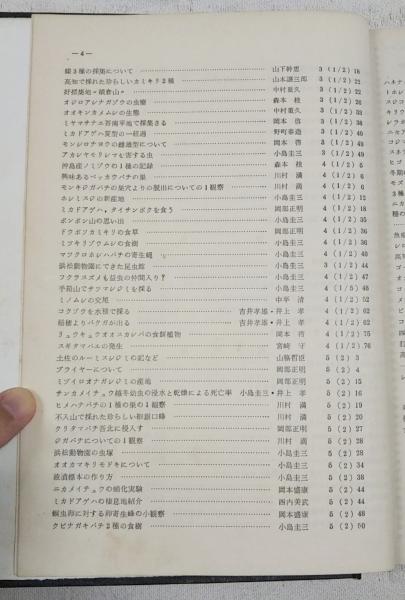 —4—
蝶3種の採集について 山下幹恵 3 (1/2) 18
高知で採れた珍らしいカミキリ2種 山本謙三郎 3 (1/2) 22
好採集地“横倉山” 中村重久 3 (1/2) 22
オジロアシナガゾウの虫癭 森本桂 3 (1/2) 26
オオキンカメムシの生態 中村重久 3 (1/2) 36
ミヤマチャエ 岡本啓 3 (1/2) 38
ミカドアゲハ蛹型の一経過 野町泰造 3 (1/2) 40
モンシロチョウの越冬型について 岡本啓 3 (1/2) 49
アカシヤモリシマを害する虫 小島圭三 3 (1/2) 49
沖島産ノミゾウの1種の記録 森本桂 4 (1/2) 5
興味あるベッカウバチの巣 川村満 4 (1/2) 6
モンキジガバチの巣穴よりの脱出についての1観察 川村満 4 (1/2) 6
ホシミスジの新産地 小島圭三 4 (1/2) 12
ミカドアゲハ,タイサンボクを食う 岡部正明 4 (1/2) 18
ボンボン山の思い出 小島圭三 4 (1/2) 35
ドウボソカミキリの食草 岡部正明 4 (1/2) 36
ミツギリゾウムシの食樹 小島圭三 4 (1/2) 36
マツクロホシハバチの寄生蝿 小島圭三 4 (1/2) 40
浜松動物園にできた昆虫館 小島圭三 4 (1/2) 44
フクラスズメも益虫の仲間入り? 小島圭三 4 (1/2) 47
手箱山でサツマシジミを採る 小島圭三 4 (1/5) 48
ミノムシの交尾 中平清 4 (1/2) 52
コクゾウを水稲で採る 吉井孝雄・井上孝 4 (1/2) 62
稲穂よりバクガが出る 吉井孝雄・井上孝 4 (1/2) 62
リュウキュウオオニカシバの食餌植物 岡本啓 4 (1/2) 75
スギタマバエの発生 宮崎守 4 (1/2) 76
土佐のルーミスシジミの記など 山脇哲臣 5 (2) 3
プライヤーについて 岡部正明 5 (2) 4
ミヅイロオナガシジミの産地 岡部正明 5 (2) 15
サンカメイチュウ越冬幼虫の浸水と乾燥による死亡率 小島圭三・井上孝 5 (2) 16
ヒメハナバチの1種の巣の1観察 川村満 5 (2) 19
不入山で採れた珍らしい 川村満 5 (2) 20
クリタマバチ吾北に侵入す 岡部正明 5 (2) 27
ジガバチについての1観察 川村満 5 (2) 28
浜松動物園の虫塚 小島圭三 5 (2) 28
オオカマキリモドキについて 小島圭三 5 (2) 34
液漬標本の作り方 小島圭三 5 (2) 38
ニカメイチュウの蛹化実験 岡本盛康 5 (2) 44
ミカドアゲハの棲息地紹介 西内美武 5 (2) 44
螟虫卵に対する卵寄生蜂の小観察 岡本盛康 5 (2) 48
クビナガキバチ2種の食樹 小島圭三 5 (2) 50